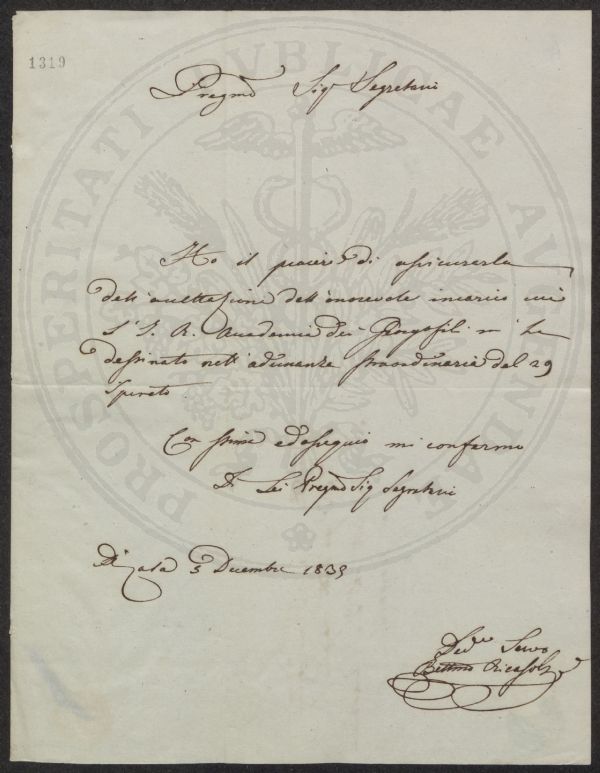 1319
PROSPERITATI PVBLICAE AVGENDAE
Pregmo Sigr Segretario
Ho il piacere di assicurarla
dell'accettazione dell'onorevole incarico cui
l'I. R. Accademia dei Georgofili mi ha
destinato nell'adunanza straordinaria del 29
spirato
Con stima ed ossequio mi confermo
Di Lei Pregmo Sig Segretario
Di Casa 5 Decembre 1835
Devmo Servo
Bettino Ricasoli